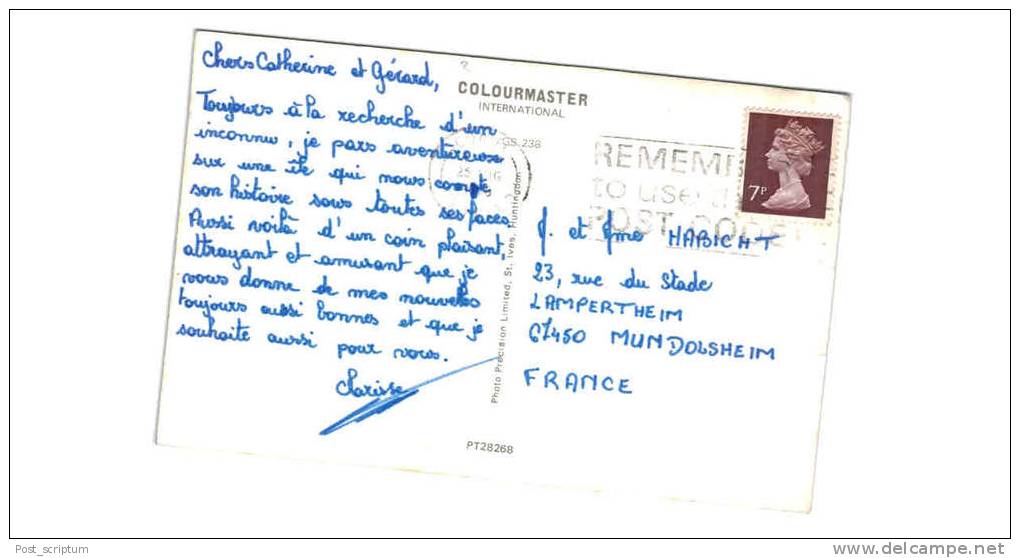 Chers Catherine et Gérard,
Toujours à la recherche d'un
inconnu, je pars aventureuse
sur une île qui nous compte
son histoire sous toutes ses faces,
Aussi voilà d'un coin plaisant,
attrayant et amusant que je
vous donne de mes nouvelles
toujours aussi bonnes et que je
souhaite aussi pour vous.
Clarisse
COLOURMASTER
INTERNATIONAL
Photo Precision Limited, St. Ives, Huntingdon
PT28268
REMEM
to use
POST CODE
7P
et Mme HABICHT
23, rue du Stade
LAMPERTHEIM
67450 MUNDOLSHEIM
FRANCE
Post_scriptum
delcampe.net